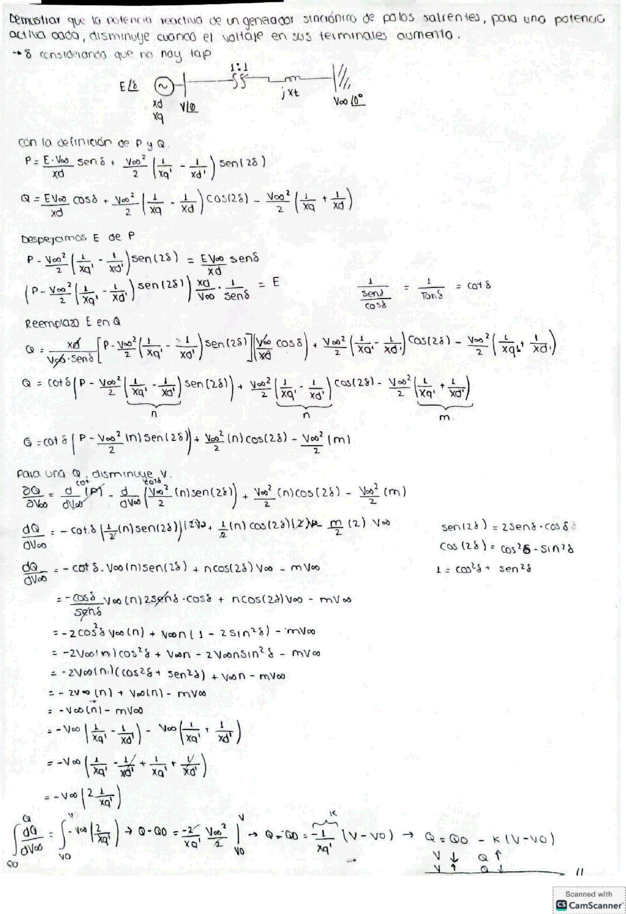 Demostrar que la potencia reactiva de un generador sincrónico de polos salientes, para una potencia
activa dada, disminuye cuando el voltaje en sus terminales aumenta.
→ δ considerando que no hay tap
1:1
E/δ
V/θ
jxt
V∞/0°
xd
xq
con la definición de P y Q.
P = E·V∞/xd senδ + V∞²/2 (1/xq' - 1/xd') sen(2δ)
Q = EV∞/xd cosδ + V∞²/2 (1/xq - 1/xd) cos(2δ) - V∞²/2 (1/xq + 1/xd)
Despejamos E de P
P - V∞²/2 (1/xq' - 1/xd') sen(2δ) = EV∞/xd senδ
(P - V∞²/2 (1/xq' - 1/xd') sen(2δ)) xd/V∞ · 1/senδ = E
1/(senδ/cosδ) = 1/Tanδ = cotδ
Reemplazo E en Q
Q = xd/(V∞·senδ) [P - V∞²/2 (1/xq' - 1/xd') sen(2δ)] (V∞/xd cosδ) + V∞²/2 (1/xq' - 1/xd') cos(2δ) - V∞²/2 (1/xq' + 1/xd')
Q = cotδ (P - V∞²/2 (1/xq' - 1/xd') sen(2δ)) + V∞²/2 (1/xq' - 1/xd') cos(2δ) - V∞²/2 (1/xq' + 1/xd')
n n m
Q = cotδ (P - V∞²/2 (n) sen(2δ)) + V∞²/2 (n) cos(2δ) - V∞²/2 (m)
Para una Q, disminuye V.
∂Q/∂V∞ = d/dV∞ cot (P) - d/dV∞ (V∞²/2 (n) sen(2δ)) + V∞²/2 (n) cos(2δ) - V∞²/2 (m)
dQ/dV∞ = - cotδ (1/2 (n) sen(2δ)) (2V∞ + 1/2 (n) cos(2δ) (2) V∞ - m/2 (2) V∞
sen(2δ) = 2senδ·cosδ
dQ/dV∞ = - cotδ · V∞(n)sen(2δ) + ncos(2δ)V∞ - mV∞
cos(2δ) = cos²δ - sin²δ
1 = cos²δ + sen²δ
= -cosδ/senδ V∞(n) 2senδ·cosδ + ncos(2δ)V∞ - mV∞
= -2cos²δ V∞(n) + V∞n (1 - 2sin²δ) - mV∞
= -2V∞(n)cos²δ + V∞n - 2V∞nsin²δ - mV∞
= -2V∞(n)(cos²δ + sen²δ) + V∞n - mV∞
= -2V∞(n) + V∞(n) - mV∞
= -V∞(n) - mV∞
= -V∞ (1/xq' - 1/xd') - V∞ (1/xq' + 1/xd')
= -V∞ (1/xq' - 1/xd' + 1/xq' + 1/xd')
= -V∞ (2 1/xq')
∫ Q Q0 dQ/dV∞ = ∫ V V0 -V∞ (2/xq') → Q-Q0 = -2/xq' V∞²/2 | V V0 → Q-Q0 = -1/xq' (V-V0) → Q = Q0 - K(V-V0)
K
V ↓ Q ↑
V ↑ Q ↓
Scanned with
CS CamScanner